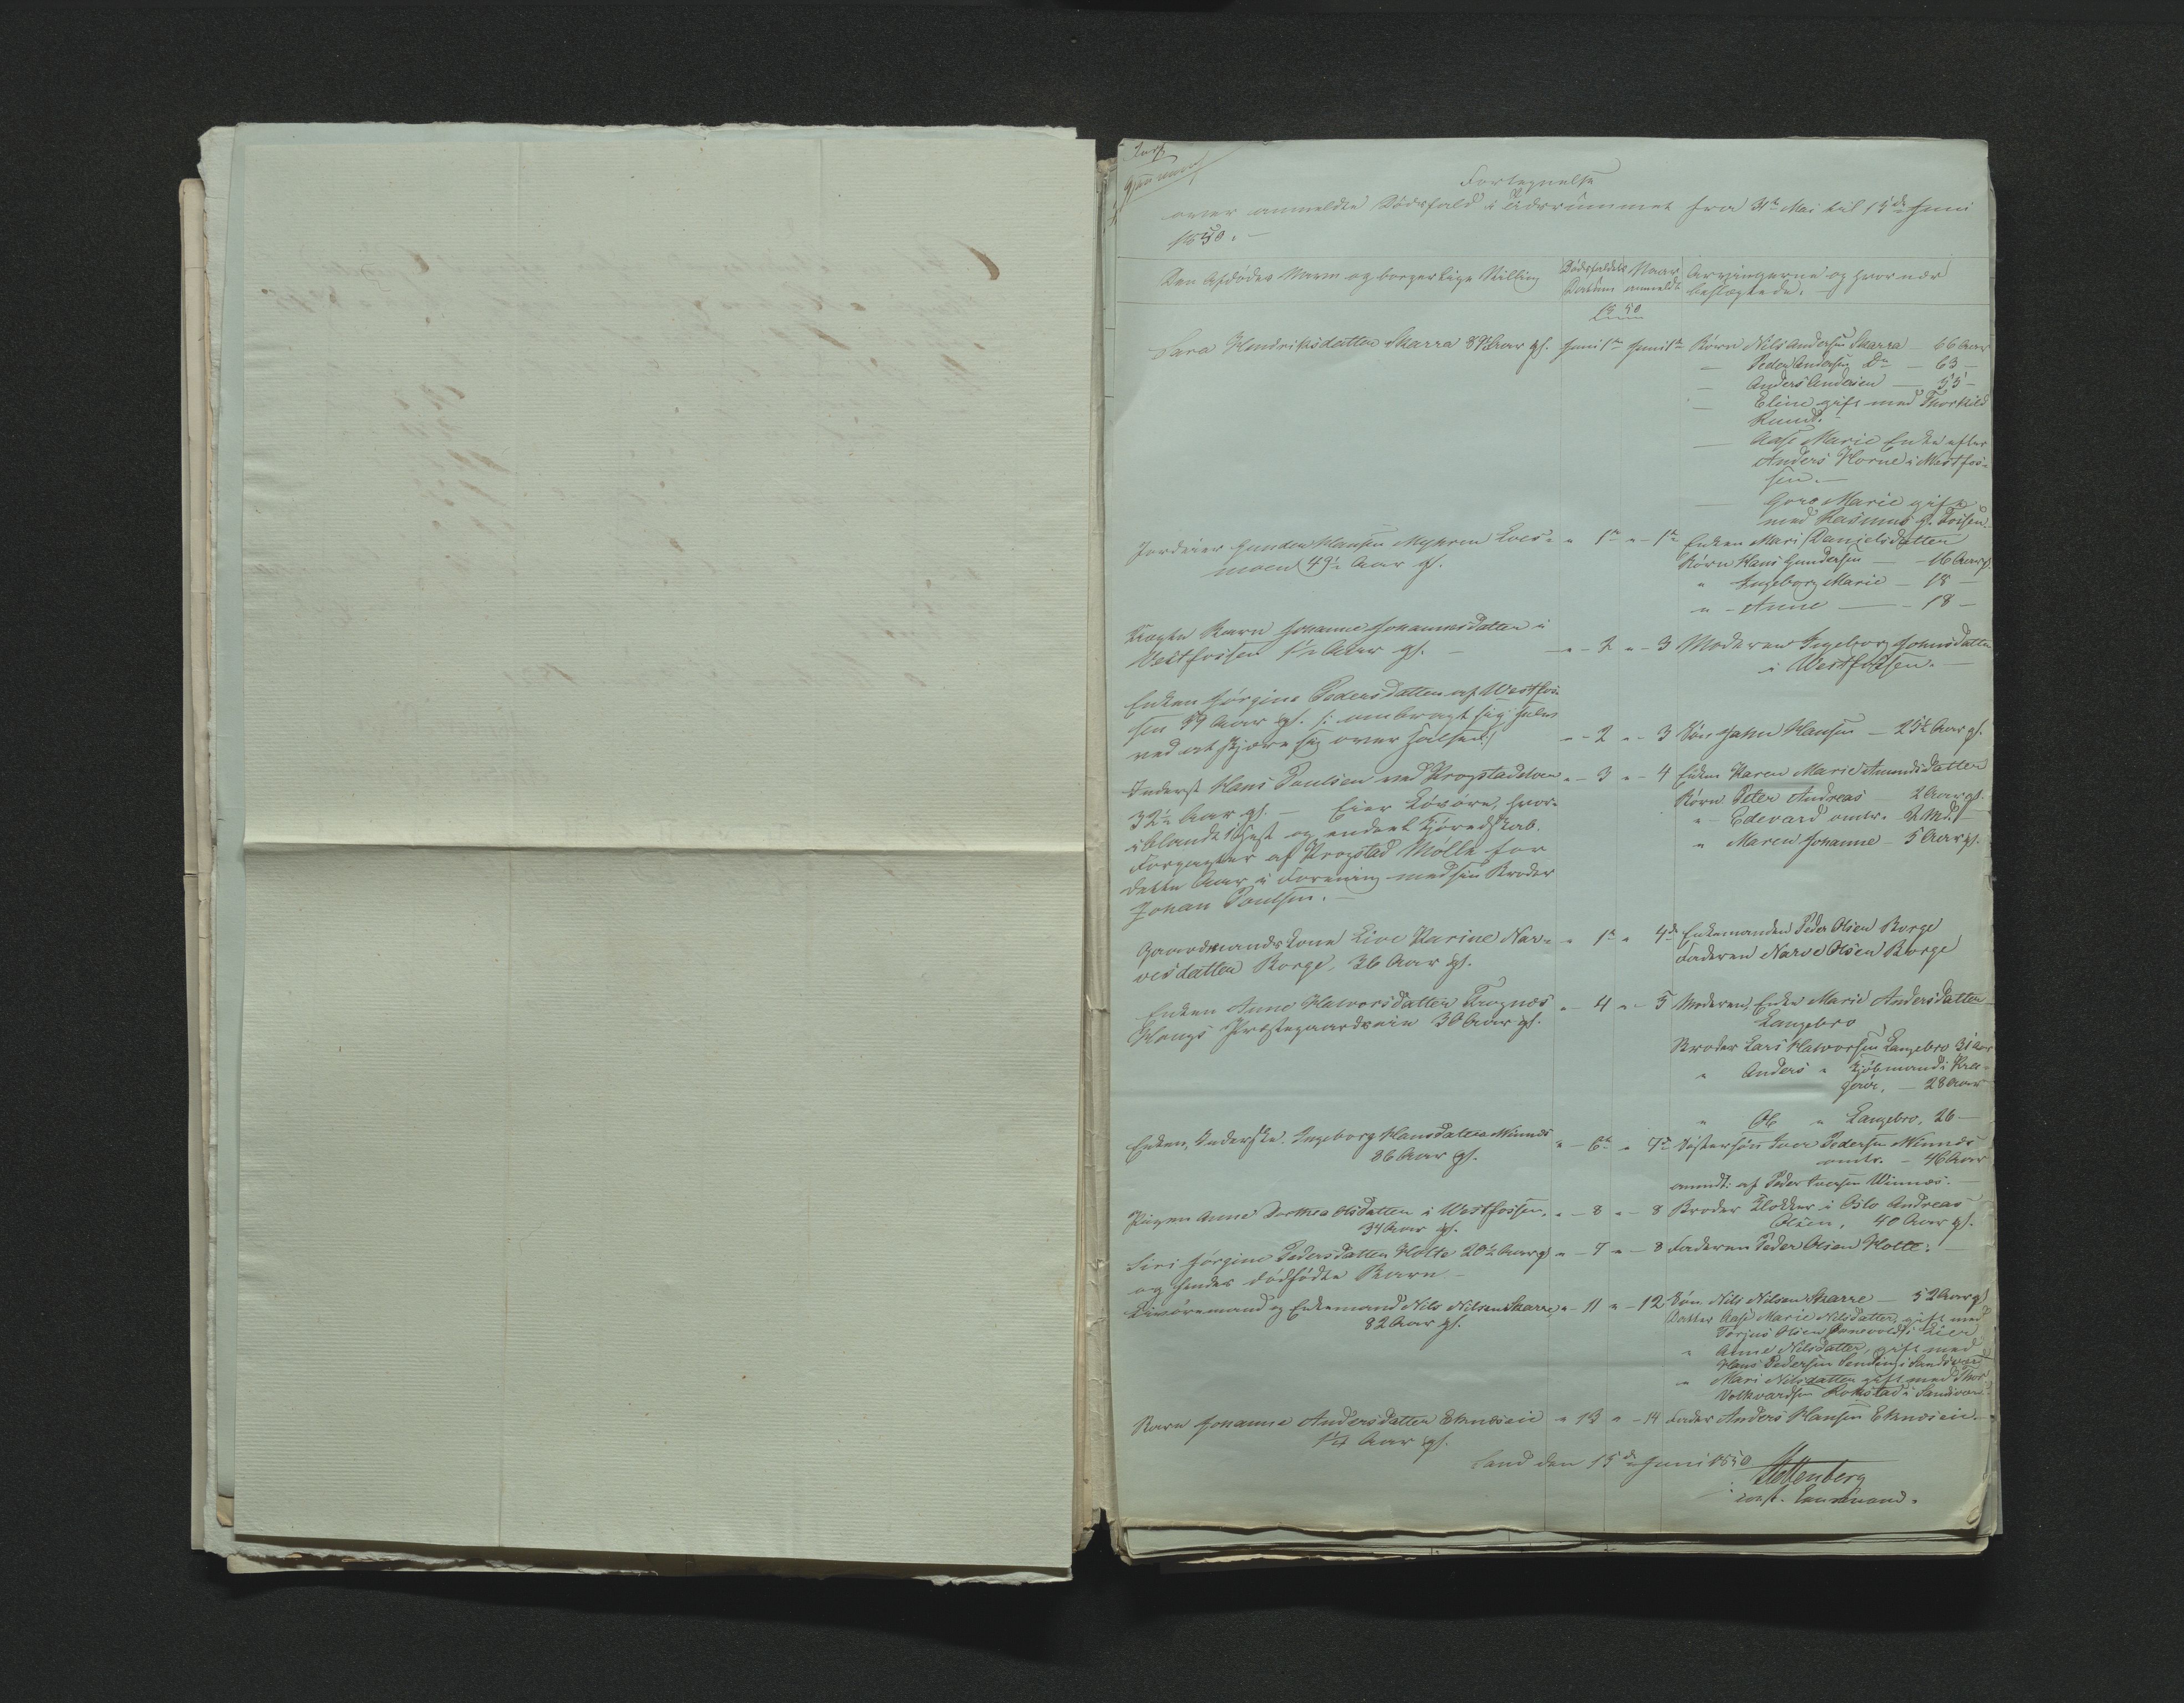 Fortegnelse
over anmeldte Dødsfald i Tidsrummet fra 31te Mai til 15de Juni
1850.
Den Afdødes Navn og borgerlige Stilling
Dødsfaldets Datum
Naar anmeldt
Arvingerne og hvor nær
beslægtede.
1850
Sara Hendriksdatter Skarra Aar gl. Juni 1te Juni 1te Børn Nils Andersen Skarra - 66 Aar
— Peder Andersen Do - 63 -
— Anders Andersen - 55 -
— Eline gift med Thorkild
Ruud.
— Aase Marie Enke efter
Anders Horne i Westfos-
sen.
— Gore Marie gift
med Rasmus
Jordeier Gunder Hansen Myhren Loes- " 1te " - 1te Enken Mari Danielsdatter
moen 49½ Aar gl.
Børn Hans Gundersen - 16 Aar gl.
" Ingeborg Marie - 18 -
" - Anne - 18 -
Uægte Barn Johanne Johannesdatter i
Vestfossen 1½ Aar gl. - " - 2 " - 3 Moderen Ingeborg Johnsdatter
i Westfossen. -
Enken Jørgine Pedersdatter af Westfos-
sen 59 Aar gl. /: ombragt sig selv
ved at skjære sig over Halsen :/ " - 2 " - 3 Søn John Hansen - 25½ Aar gl.
Inderst Hans Paulsen ved Krogstadelven " - 3 " - 4 Enken Karen Marie Amundsdatter
32½ Aar gl. - Eier Løsøre, hvor-
Børn Peter Andreas 2 Aar gl.
iblandt 1 Hest og endeel Kjøredskab.
" - Edevard omtr. 2 Md.
Forpagter af Krogstad Mølle for
" Maren Johanne - 5 Aar gl.
dette Aar i Forening med sin Broder
Johan Paulsen. -
Gaardmandskone Live Karine Nar- " 1te " 4de Enkemanden Peder Olsen Borge
vesdatter Borge, 36 Aar gl.
Faderen Narve Olsen Borge
Enken Anne Halvorsdatter Frognæs " - 4 " - 5 Moderen, Enke Marie Andersdatter
Hougs Præstegaardseie 30 Aar gl.
Langebro
Broder Lars Halvorsen Langebro 31 Aar
" Anders " Kjøbmand i Kra-
gerø, - 28 Aar
" Ole " Langebro, 26 -
Enken, Inderske Ingeborg Hansdatter Winnes " - 6te " 7de Søstersøn Iver Pedersen Winnes
86 Aar gl.
omtr. - 46 Aar
anmeldt af Peder Iversen Winnæs. -
Pigen Anne Dorthea Olsdatter i Westfossen, " - 8 " - 8 Broder Klokker i Oslo Andreas
34 Aar gl.
Olsen, 40 Aar gl.
Siri Jørgine Pedersdatter Holte 20½ Aar gl " - 7 " - 8 Faderen Peder Olsen Holte. -
og hendes dødfødte Barn -
og Enkemand Nils Nilsen Skarre, " - 11 " - 12 Søn Nils Nilsen Skarre - 52 Aar gl
82 Aar gl.
Datter Aase Marie Nilsdatter, gift med
Torjus Olsen i Lier
" Anne Nilsdatter, gift med
Hans Pedersen i Sandsvær
" Mari Nilsdatter gift med Thor
Volkvardsen i Sandsvær
Barn Johanne Andersdatter Eknæseie " 13 " - 14 Fader Anders Hansen Eknæseie. -
1¼ Aar gl.
Sand den 15de Juni 1850
Stoltenberg
const. Lensmand.